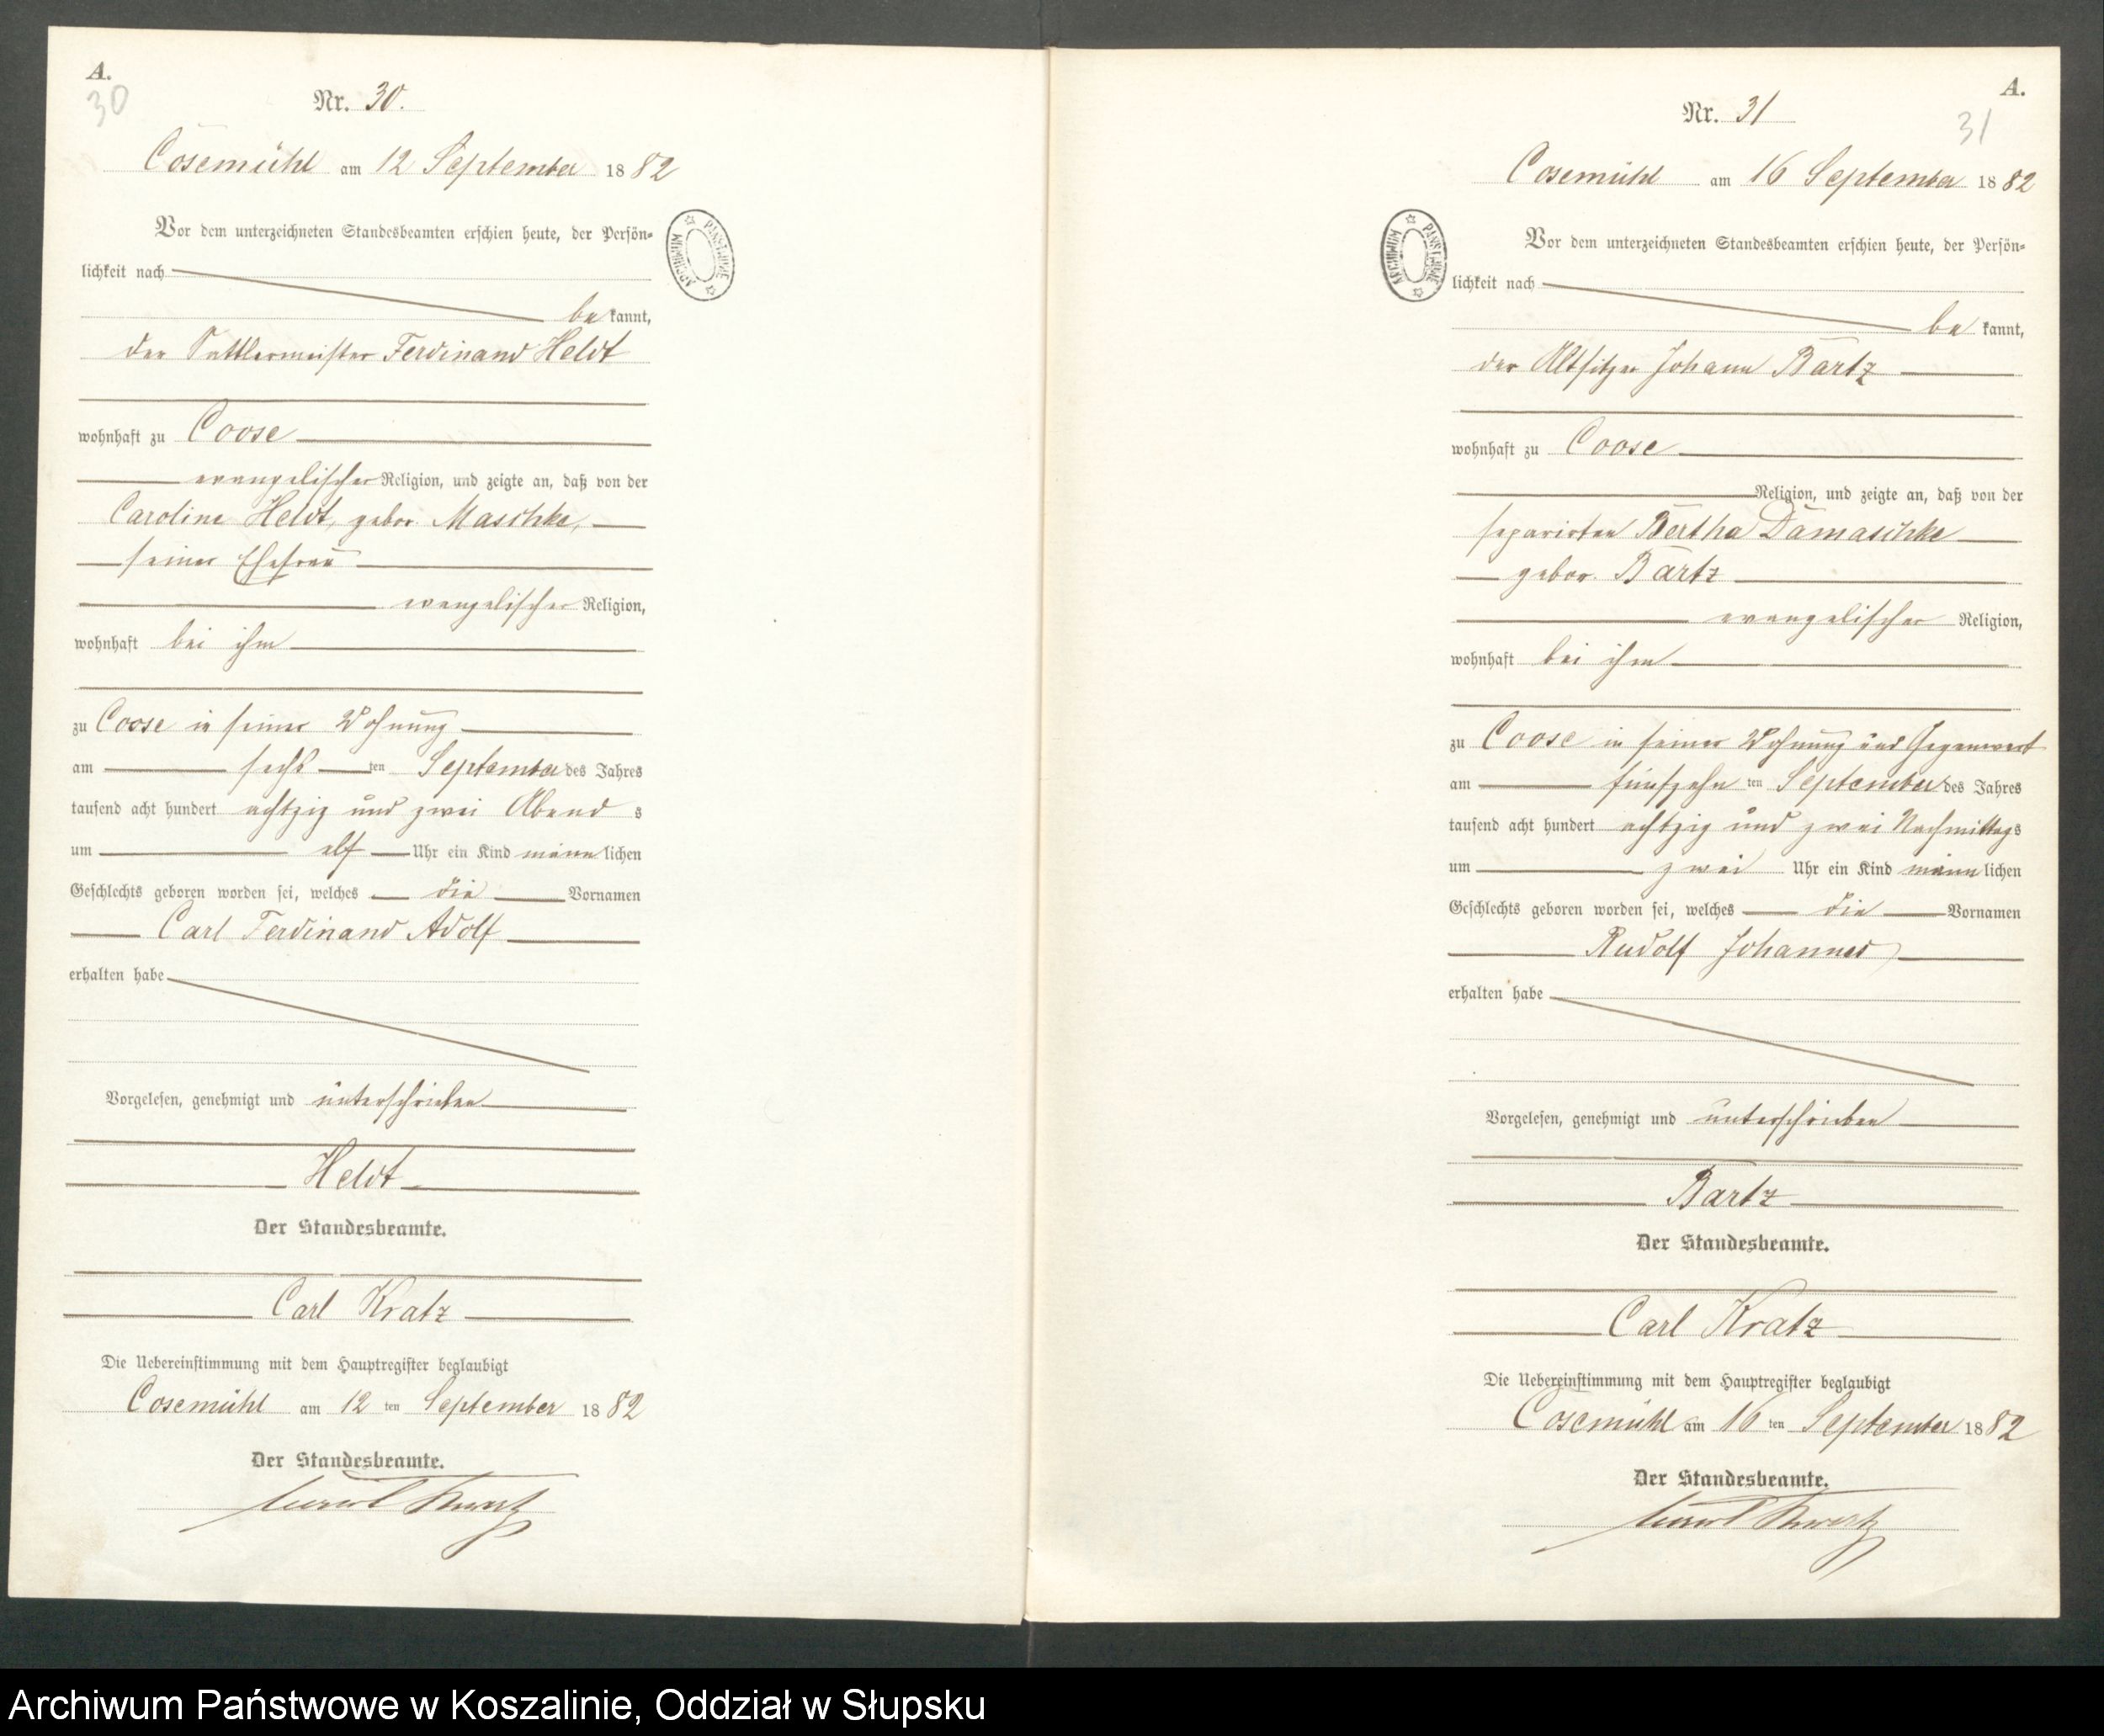 A.
30
Nr. 30.
Cosemühl am 12 September 1882
Vor dem unterzeichneten Standesbeamten erschien heute, der Persön-
lichkeit nach
be kannt,
der Sattlermeister Ferdinand Heldt
wohnhaft zu Coose
evangelischer Religion, und zeigte an, daß von der
Caroline Heldt, gebor. Maschke,
seiner Ehefrau
evangelischer Religion,
wohnhaft bei ihm
zu Coose in seiner Wohnung
am sechs ten September des Jahres
tausend acht hundert achtzig und zwei Abend s
um elf Uhr ein Kind männ lichen
Geschlechts geboren worden sei, welches die Vornamen
Carl Ferdinand Adolf
erhalten habe
Vorgelesen, genehmigt und unterschrieben
Heldt
Der Standesbeamte.
Carl Kratz
Die Uebereinstimmung mit dem Hauptregister beglaubigt
Cosemühl am 12 ten September 1882
Der Standesbeamte.
ARCHIWUM PAŃSTWOWE
A.
31
Nr. 31
Cosemühl am 16 September 1882
Vor dem unterzeichneten Standesbeamten erschien heute, der Persön-
lichkeit nach
be kannt,
der Altsitzer Johann Bartz
wohnhaft zu Coose
Religion, und zeigte an, daß von der
separirten Bertha Damaschke
gebor. Bartz
evangelischer Religion,
wohnhaft bei ihm
zu Coose in seiner Wohnung und Gegenwart
am fünfzehn ten September des Jahres
tausend acht hundert achtzig und zwei Nachmittags
um zwei Uhr ein Kind männ lichen
Geschlechts geboren worden sei, welches die Vornamen
Rudolf Johannes
erhalten habe
Vorgelesen, genehmigt und unterschrieben
Bartz
Der Standesbeamte.
Carl Kratz
Die Uebereinstimmung mit dem Hauptregister beglaubigt
Cosemühl am 16 ten September 1882
Der Standesbeamte.
ARCHIWUM PAŃSTWOWE
Archiwum Państwowe w Koszalinie, Oddział w Słupsku